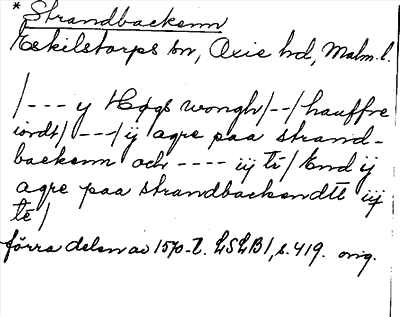 * Strandbackenn
Eskilstorps sn, Oxie hd, Malm. l.
/--- y Høgs wongh/--/hauffve
iordt/ ---/ ij agre paa strand-
backenn och ---- iij ti/ End ij
agre paa strandbackendtt iij
te/
förra delen av 1570-t. LSLB1, s. 419. orig.